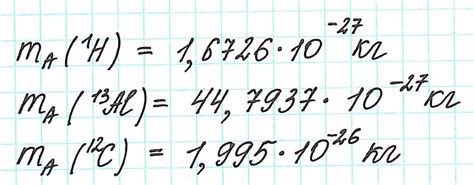 m_A(¹H) = 1,6726·10⁻²⁷кг
m_A(¹³Al) = 44,7937·10⁻²⁷кг
m_A(¹²C) = 1,995·10⁻²⁶кг